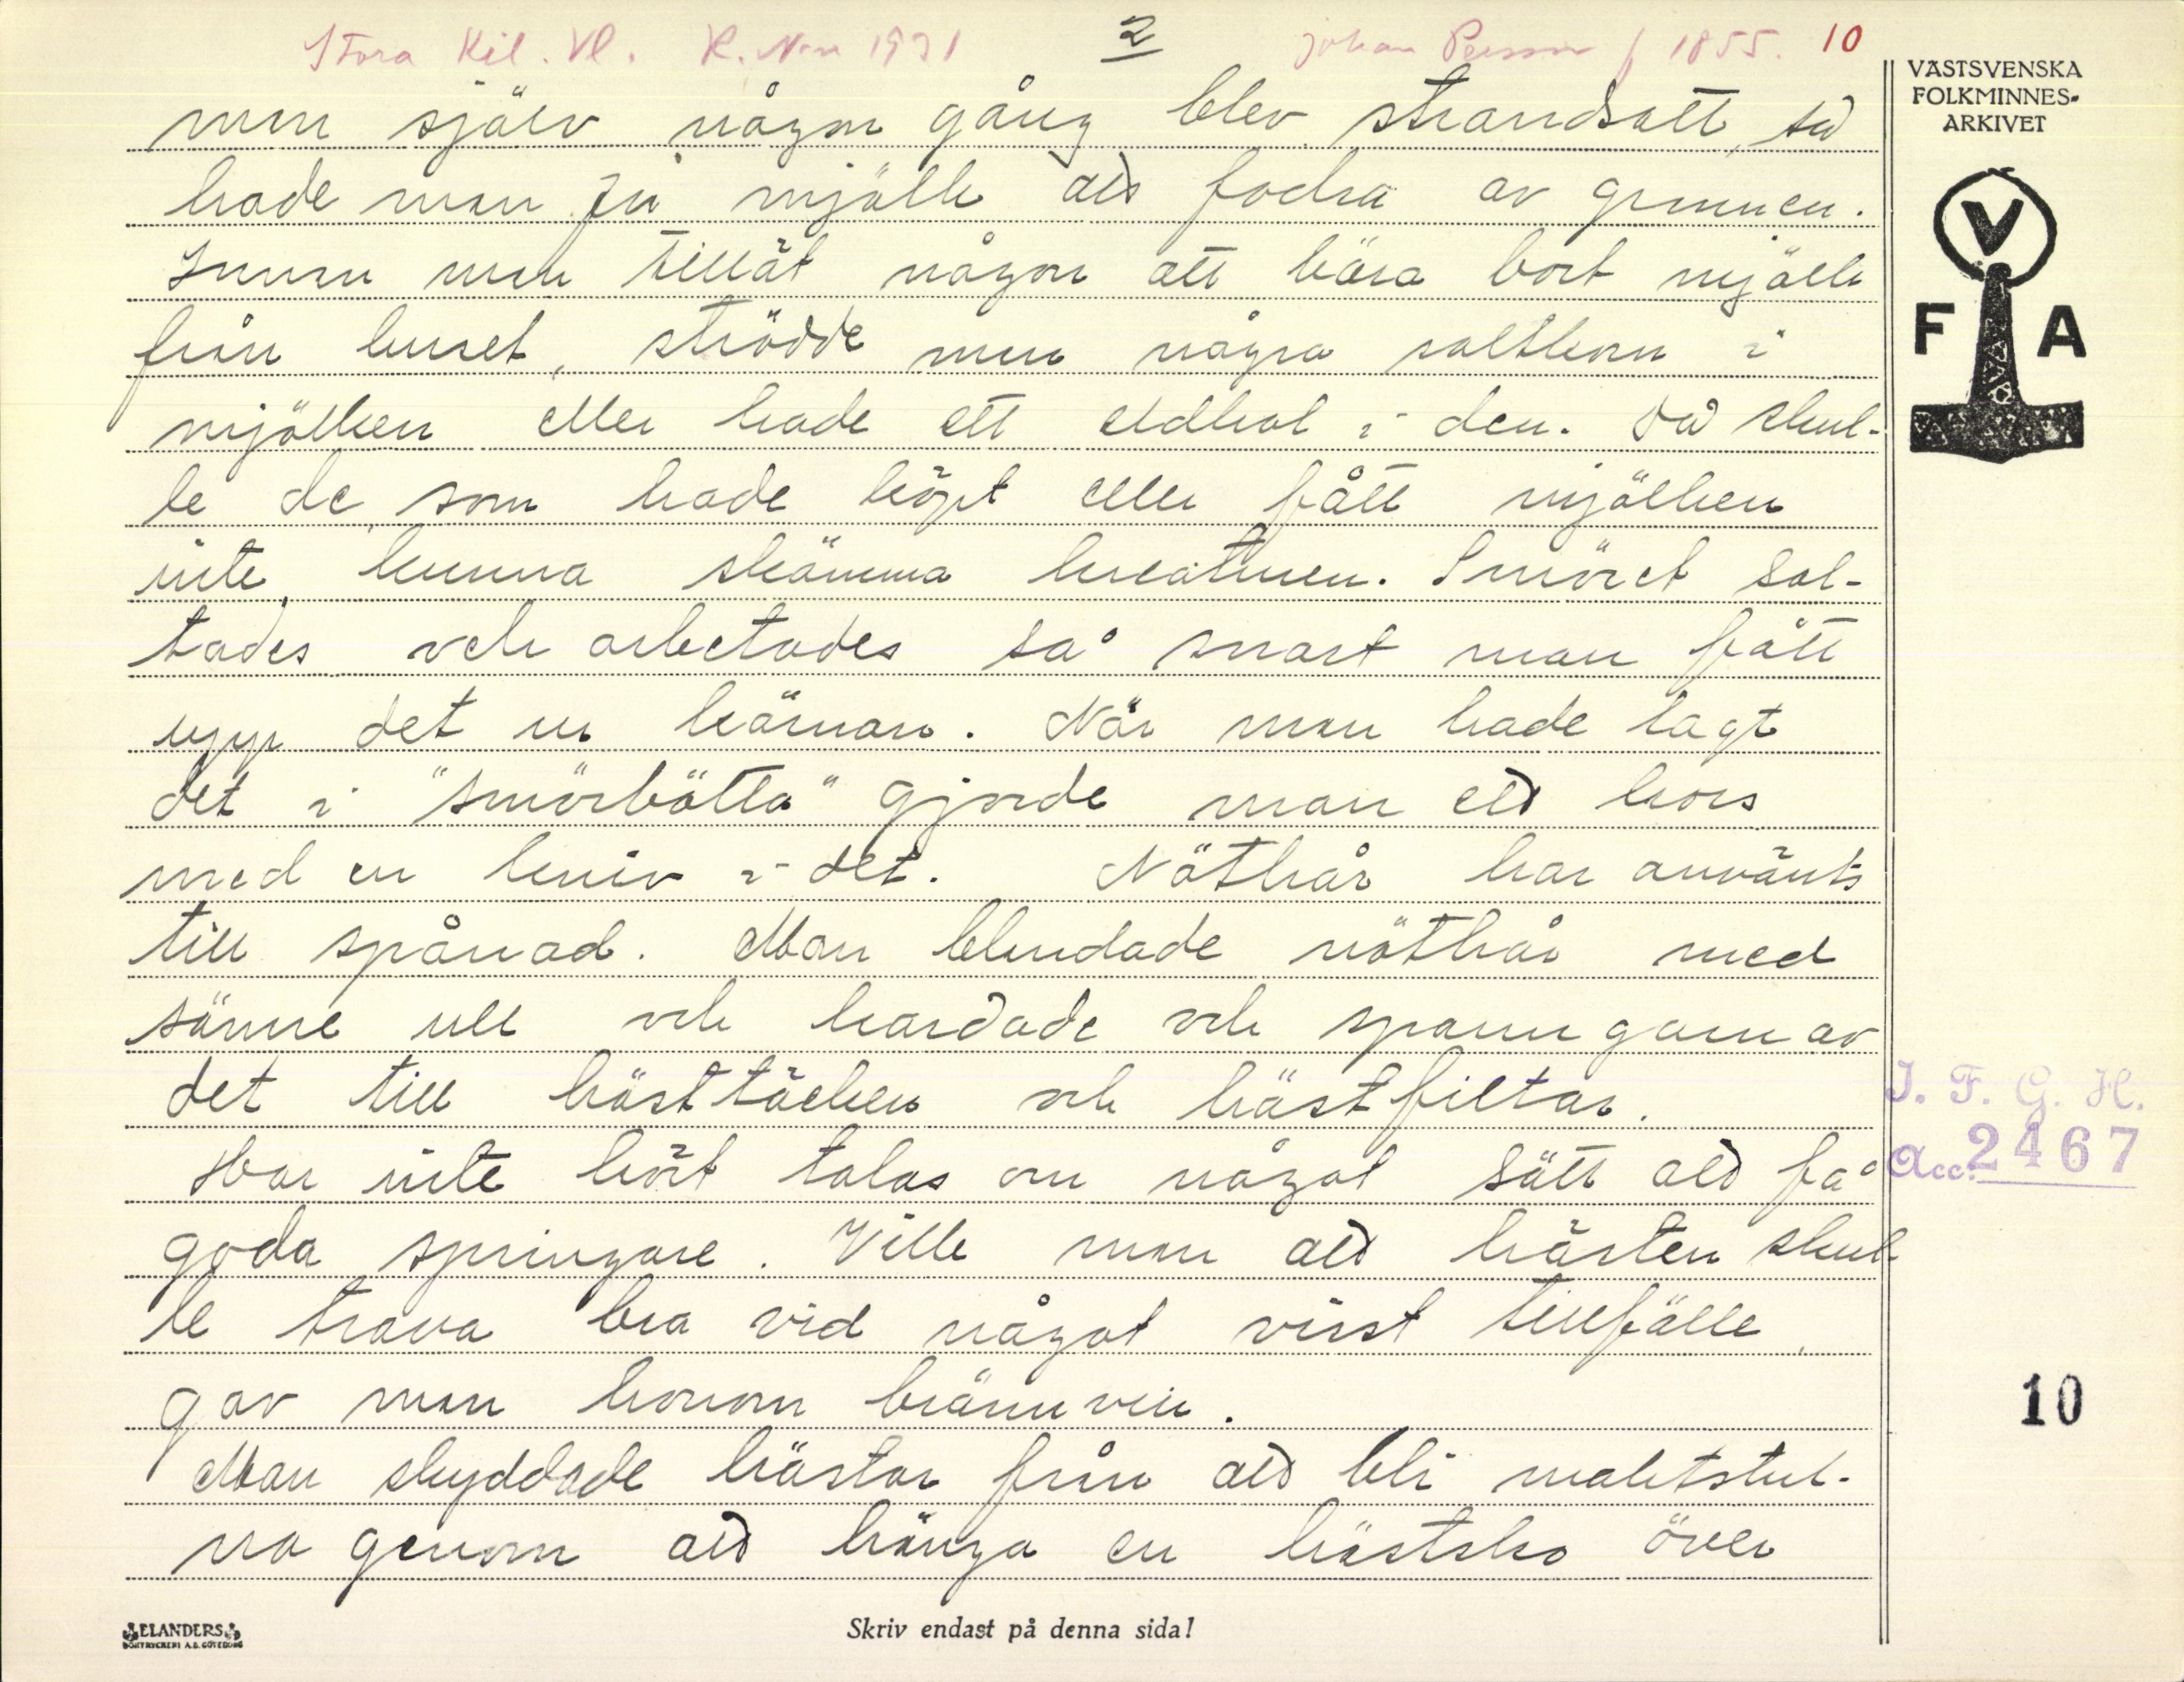 Stora Kil. Vl. K. Non 1931 2 Johan Persson f 1855. 10
man själv någon gång blev strandsatt, så
hade man få mjölk att fodra av grannen.
Innan man tillät någon att bära bort mjölk
från huset, strödde man några saltkorn i
mjölken eller hade ett eldkol i den. Då skul-
le de som hade köpt eller fått mjölken
inte kunna skämma kreaturen. Smöret sal-
tades och arbetades så snart man fått
upp det ur kärnan. När man hade lagt
det i "smörbötta" gjorde man ett kors
med en kniv i det. Nöthår har använts
till spånad. Man blandade nöthår med
sämre ull och kardade och spann garn av
det till hästtäcken och hästfiltar.
Har inte hört talas om något sätt att få
goda springare. Ville man att hästen skul-
le trava bra vid något visst tillfälle,
gav man honom brännvin.
Man skyddade hästar från att bli maktstul-
na genom att hänga en hästsko över
VÄSTSVENSKA
FOLKMINNES-
ARKIVET
V
F A
I. F. G. H.
Acc. 2467
10
ELANDERS
BOKTRYCKERI A.B. GÖTEBORG
Skriv endast på denna sida!